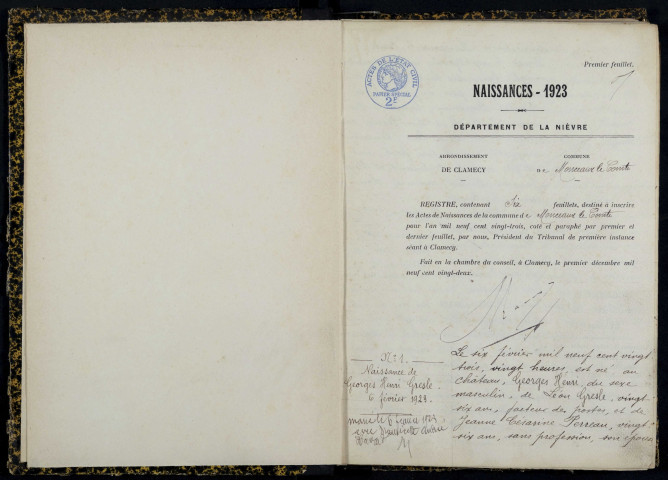 Premier feuillet.
ACTES DE L'ÉTAT CIVIL
PAPIER SPÉCIAL
2F
NAISSANCES - 1923
DÉPARTEMENT DE LA NIÈVRE
ARRONDISSEMENT
DE CLAMECY
COMMUNE
DE Monceaux le Comte
REGISTRE, contenant Six feuillets, destiné à inscrire
les Actes de Naissances de la commune de Monceaux le Comte
pour l'an mil neuf cent vingt-trois, coté et paraphé par premier et
dernier feuillet, par nous, Président du Tribunal de première instance
séant à Clamecy.
Fait en la chambre du conseil, à Clamecy, le premier décembre mil
neuf cent vingt-deux.
N° 1.
Naissance de
Georges Henri Gresle.
6 février 1923.
marié le 6
avec
Le six février mil neuf cent vingt
trois, vingt heures, est né au
château, Georges Henri, du sexe
masculin, de Léon Gresle, vingt
six ans, facteur des postes, et de
Jeanne Césarine Perreau, vingt
six ans, sans profession, son épouse